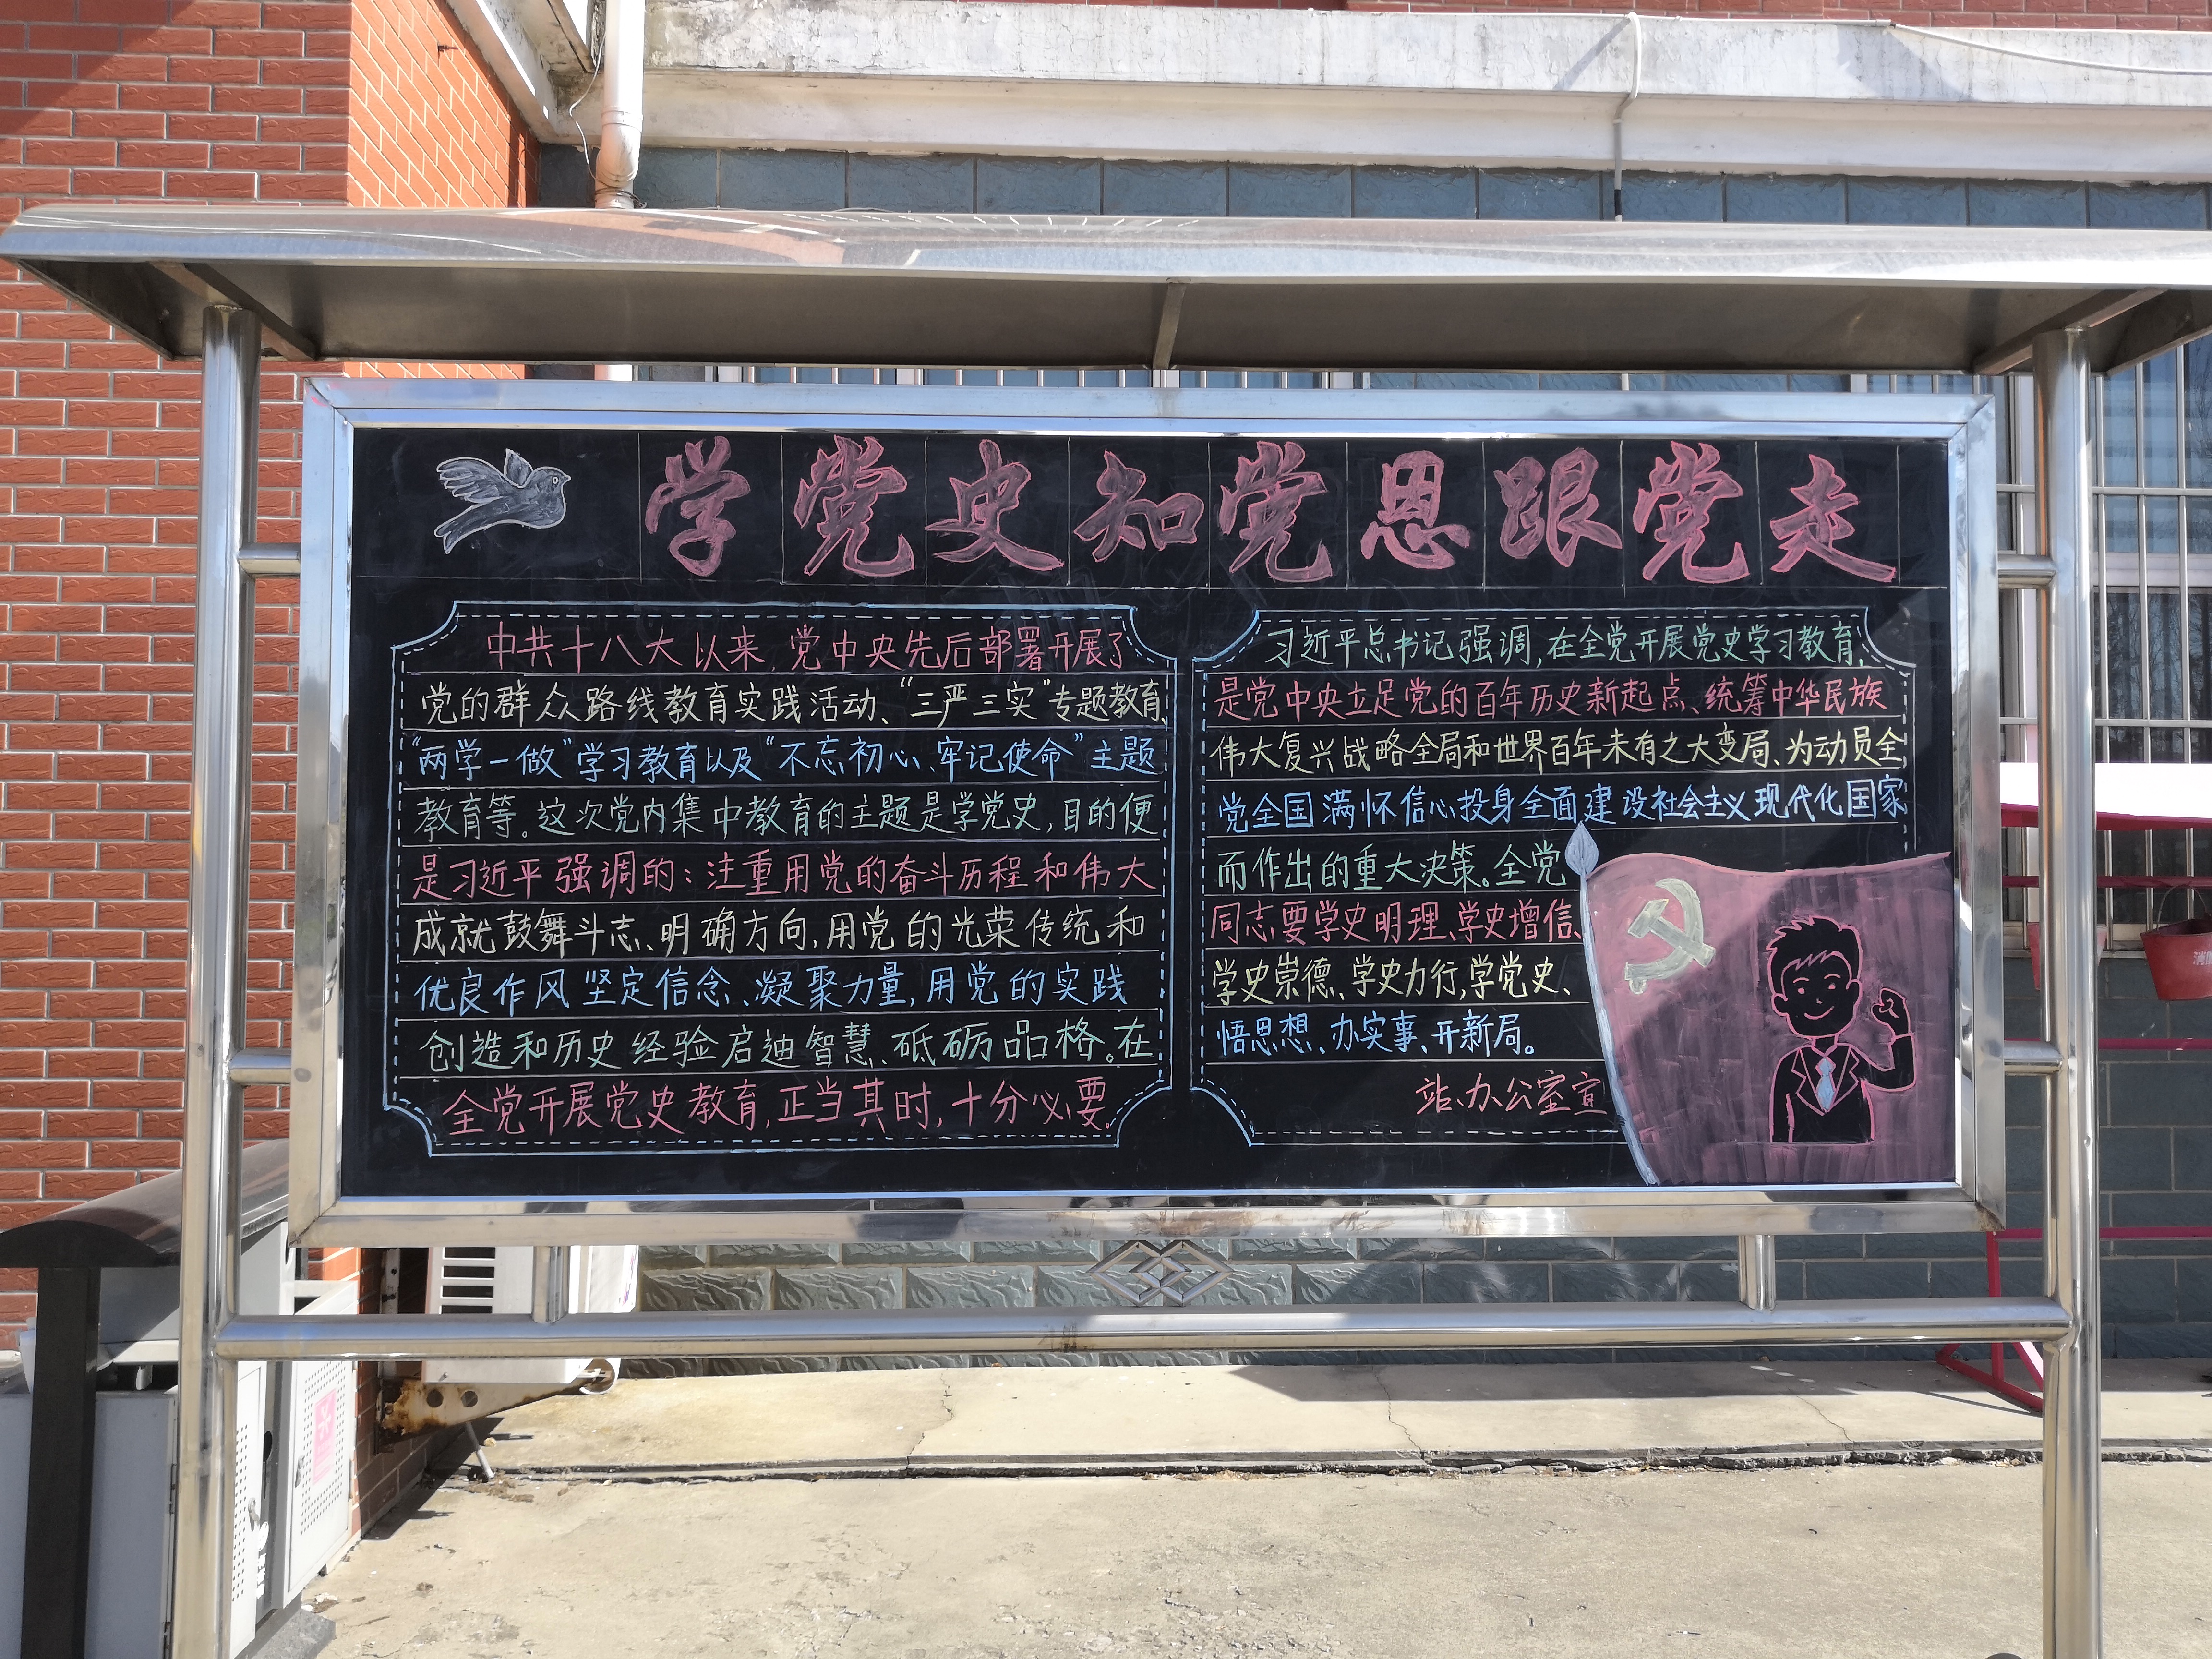 学党史知党恩跟党走
中共十八大以来,党中央先后部署开展了
党的群众路线教育实践活动、“三严三实”专题教育
“两学一做”学习教育以及“不忘初心、牢记使命”主题
教育等。这次党内集中教育的主题是学党史,目的便
是习近平强调的:注重用党的奋斗历程和伟大
成就鼓舞斗志、明确方向,用党的光荣传统和
优良作风坚定信念、凝聚力量,用党的实践
创造和历史经验启迪智慧、砥砺品格。在
全党开展党史教育,正当其时,十分必要。
习近平总书记强调,在全党开展党史学习教育,
是党中央立足党的百年历史新起点、统筹中华民族
伟大复兴战略全局和世界百年未有之大变局、为动员全
党全国满怀信心投身全面建设社会主义现代化国家
而作出的重大决策。全党
同志要学史明理、学史增信、
学史崇德、学史力行,学党史、
悟思想、办实事、开新局。
站办公室宣